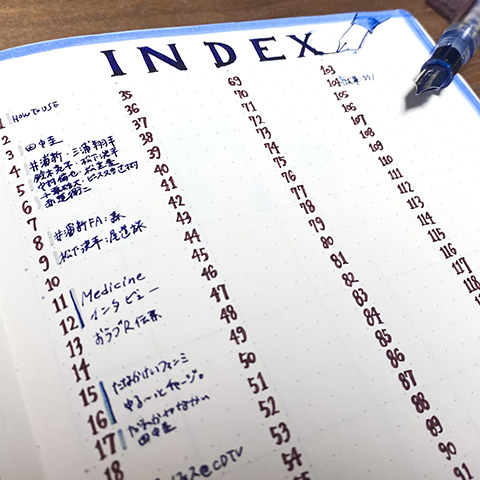 INDEX
1 HOW TO USE
2
3 田中圭
4 井浦新・三浦翔平
5 鈴木亮平・松下洸平
6
7
8 井浦新FA:森
9 松下洸平:尾道旅
10
11 Medicine
12 インタビュー
13 おラブR伝票
14
15 たなかけいファンミ
16 ゆる〜いとチャージ。
17
田中圭
18 @CDTV
35
36
37
38
39
40
41
42
43
44
45
46
47
48
49
50
51
52
53
54
55
69
70
71
72
73
74
75
76
77
78
79
80
81
82
83
84
85
86
87
88
89
90
91
103
104
105
106
107
108
109
110
111
112
113
114
115
116
117
118